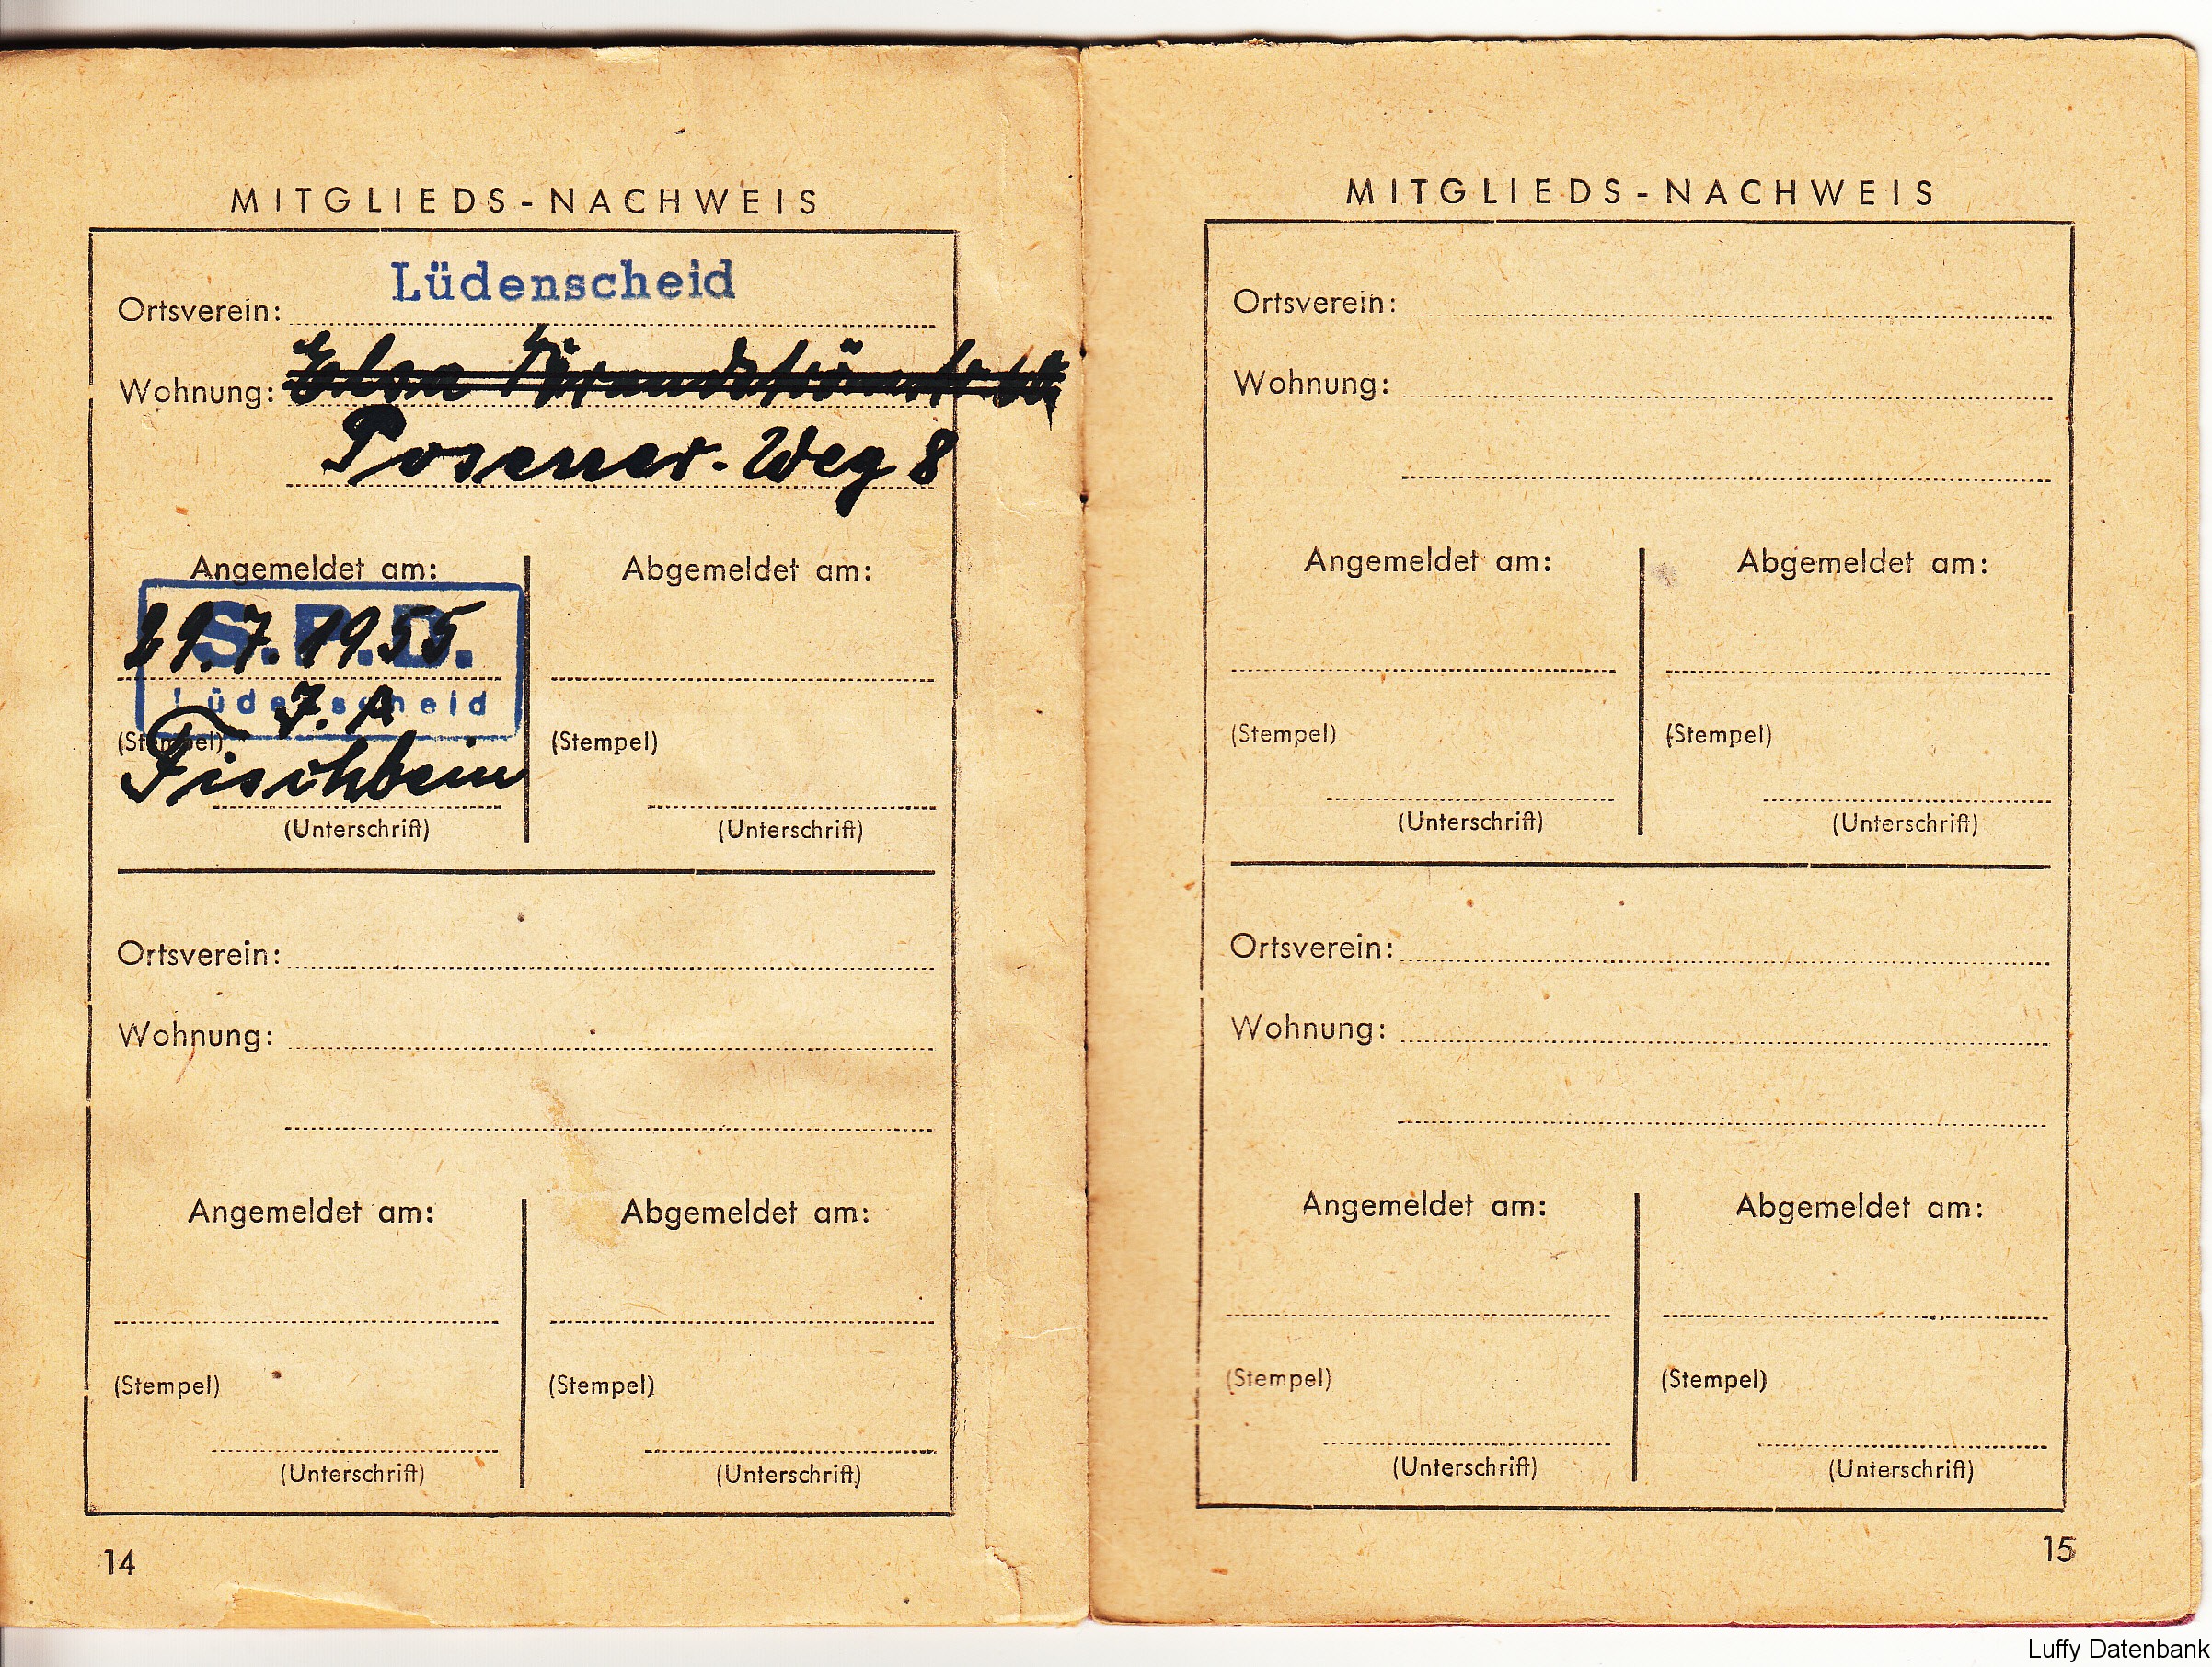 MITGLIEDS-NACHWEIS
Lüdenscheid
Ortsverein:
Wohnung: Elsa Brandströmstr.
Posener-Weg 8
Angemeldet am:
Abgemeldet am:
S.P.D.
29.7.1955.
Lüdenscheid
J. A
(Stempel)
Fischbein
(Unterschrift)
(Stempel)
(Unterschrift)
Ortsverein:
Wohnung:
Angemeldet am:
Abgemeldet am:
(Stempel)
(Stempel)
(Unterschrift)
(Unterschrift)
14
MITGLIEDS-NACHWEIS
Ortsverein:
Wohnung:
Angemeldet am:
Abgemeldet am:
(Stempel)
(Stempel)
(Unterschrift)
(Unterschrift)
Ortsverein:
Wohnung:
Angemeldet am:
Abgemeldet am:
(Stempel)
(Stempel)
(Unterschrift)
(Unterschrift)
15
Luffy Datenbank